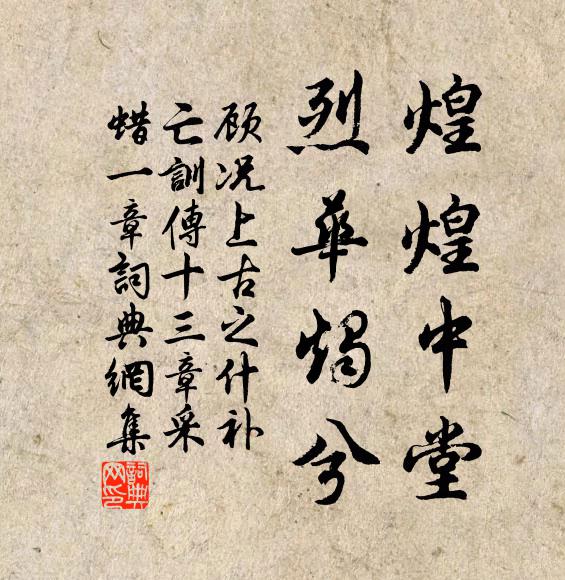 煌煌中堂
烈華燭兮
顾况上古之什补
亡訓傳十三章采
蜡一章詞典網集
詞典网印